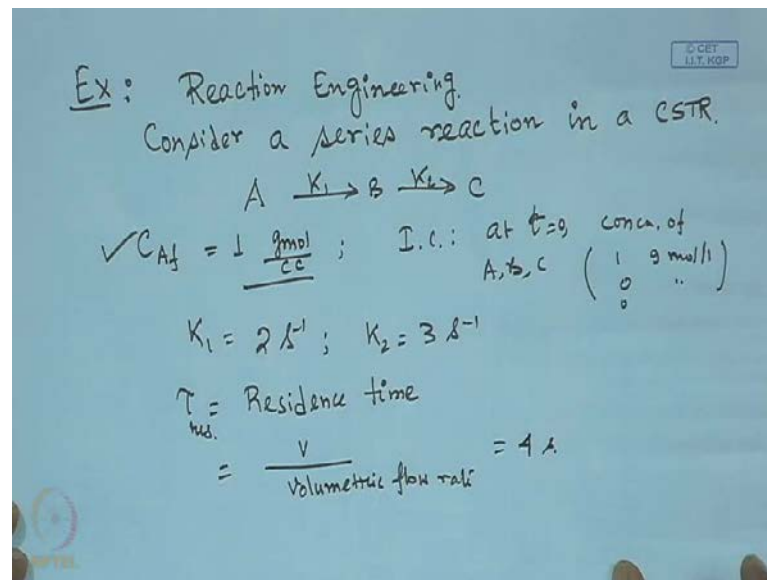 © CET
I.I.T. KGP
Ex: Reaction Engineering.
Consider a series reaction in a CSTR.
A K₁→ B K₂→ C
✓ C_Af = 1 gmol/cc ; I.C.: at t=0, concn. of
A, B, C ( 1 gmol/l
0 "
0 )
K₁ = 2 s⁻¹ ; K₂ = 3 s⁻¹
τ_res. = Residence time
= V / Volumetric flow rate = 4 s.
NPTEL